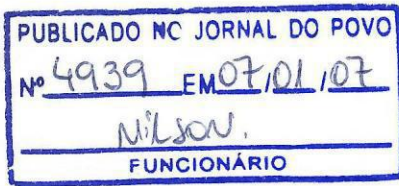 PUBLICADO NO JORNAL DO POVO
Nº 4939 EM 07/01/07
NILSON.
FUNCIONÁRIO